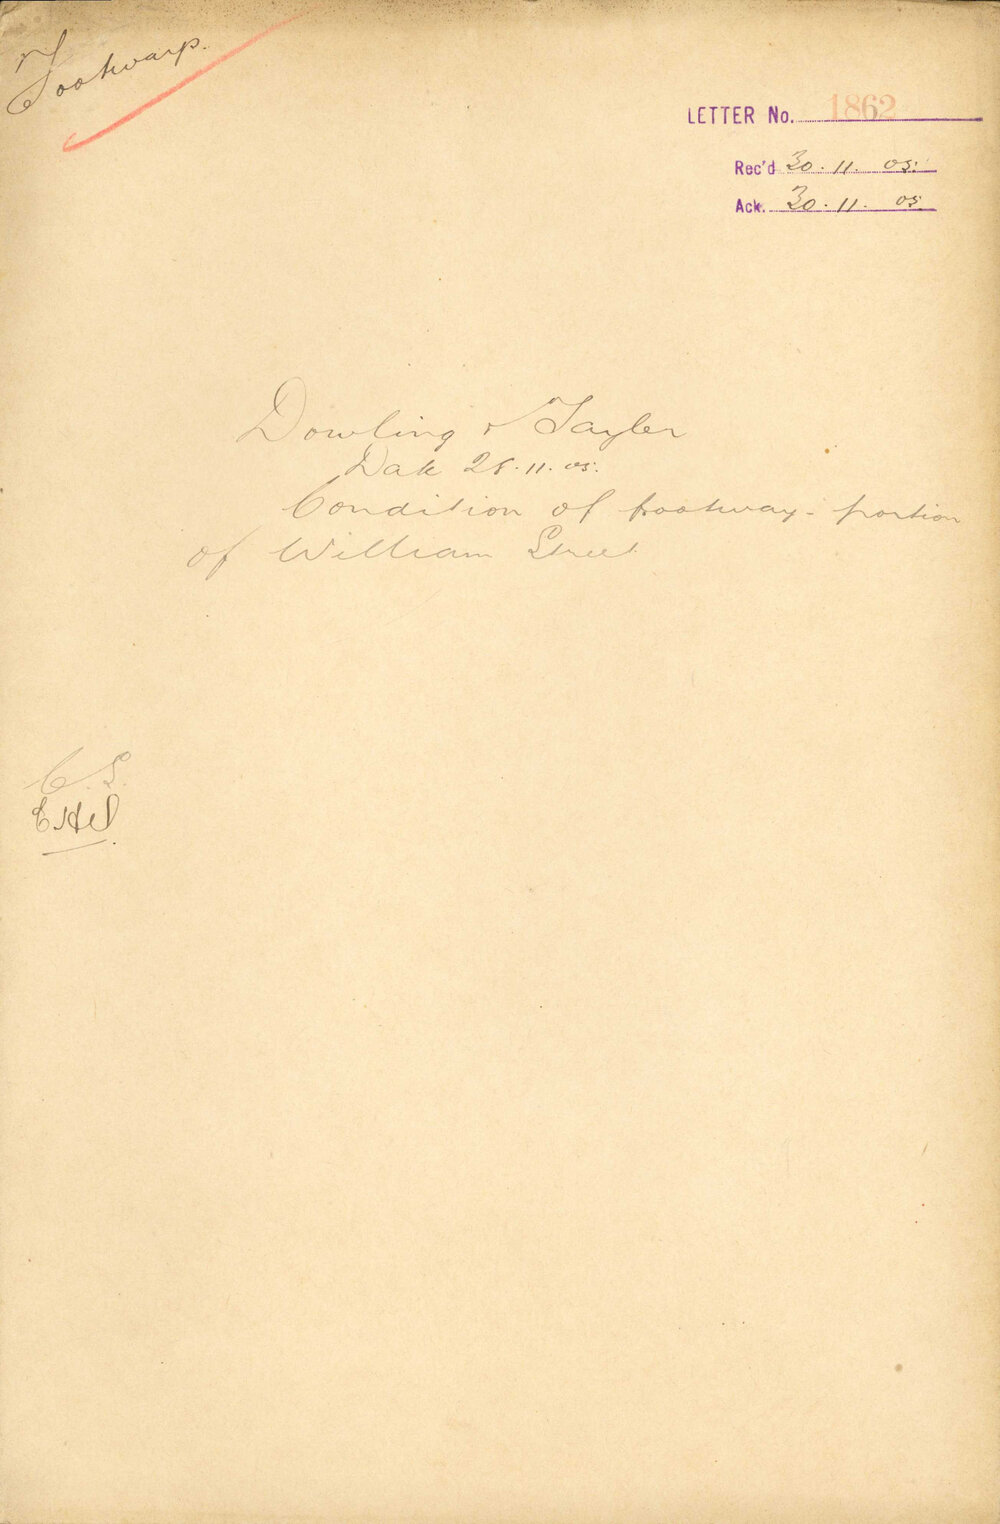 Footways.
LETTER No. 1862
Rec'd 30.11.05.
Ack. 30.11.05
Dowling & Tayler
Date 28.11.05.
Condition of footway - portion
of William Street
C.S.